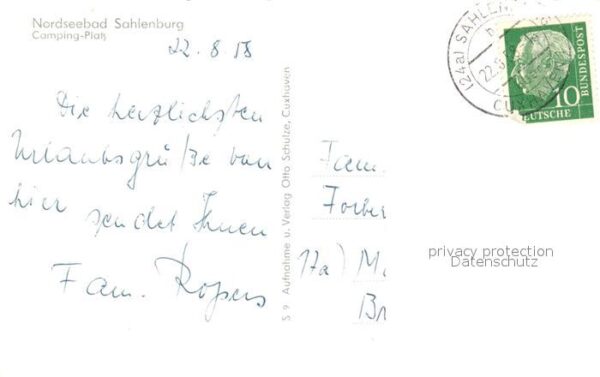 Nordseebad Sahlenburg
Camping-Platz
22.8.58
Die herzlichsten
Urlaubsgrüße von
hier sendet Ihnen
Fam. Ropers
S 9 Aufnahme u. Verlag Otto Schulze, Cuxhaven
(24a) SAHLEN
22.8.
CUX
10
DEUTSCHE BUNDESPOST
Fam.
Forber
17a) M.
Br
privacy protection
Datenschutz